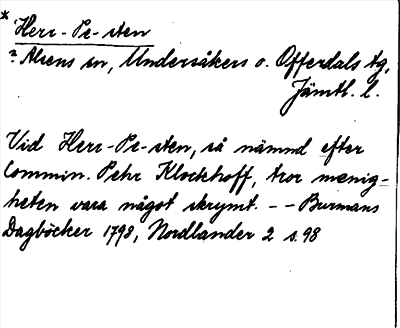 * Herr-Pe-sten
? Alsens sn, Undersåkers o. Offerdals tg,
Jämtl. l.
Vid Herr-Pe-sten, så nämnd efter
Commin. Pehr Klockhoff, tror menig-
heten vara något skrymt. -- Burmans
Dagböcker 1793, Nordlander 2 s. 98